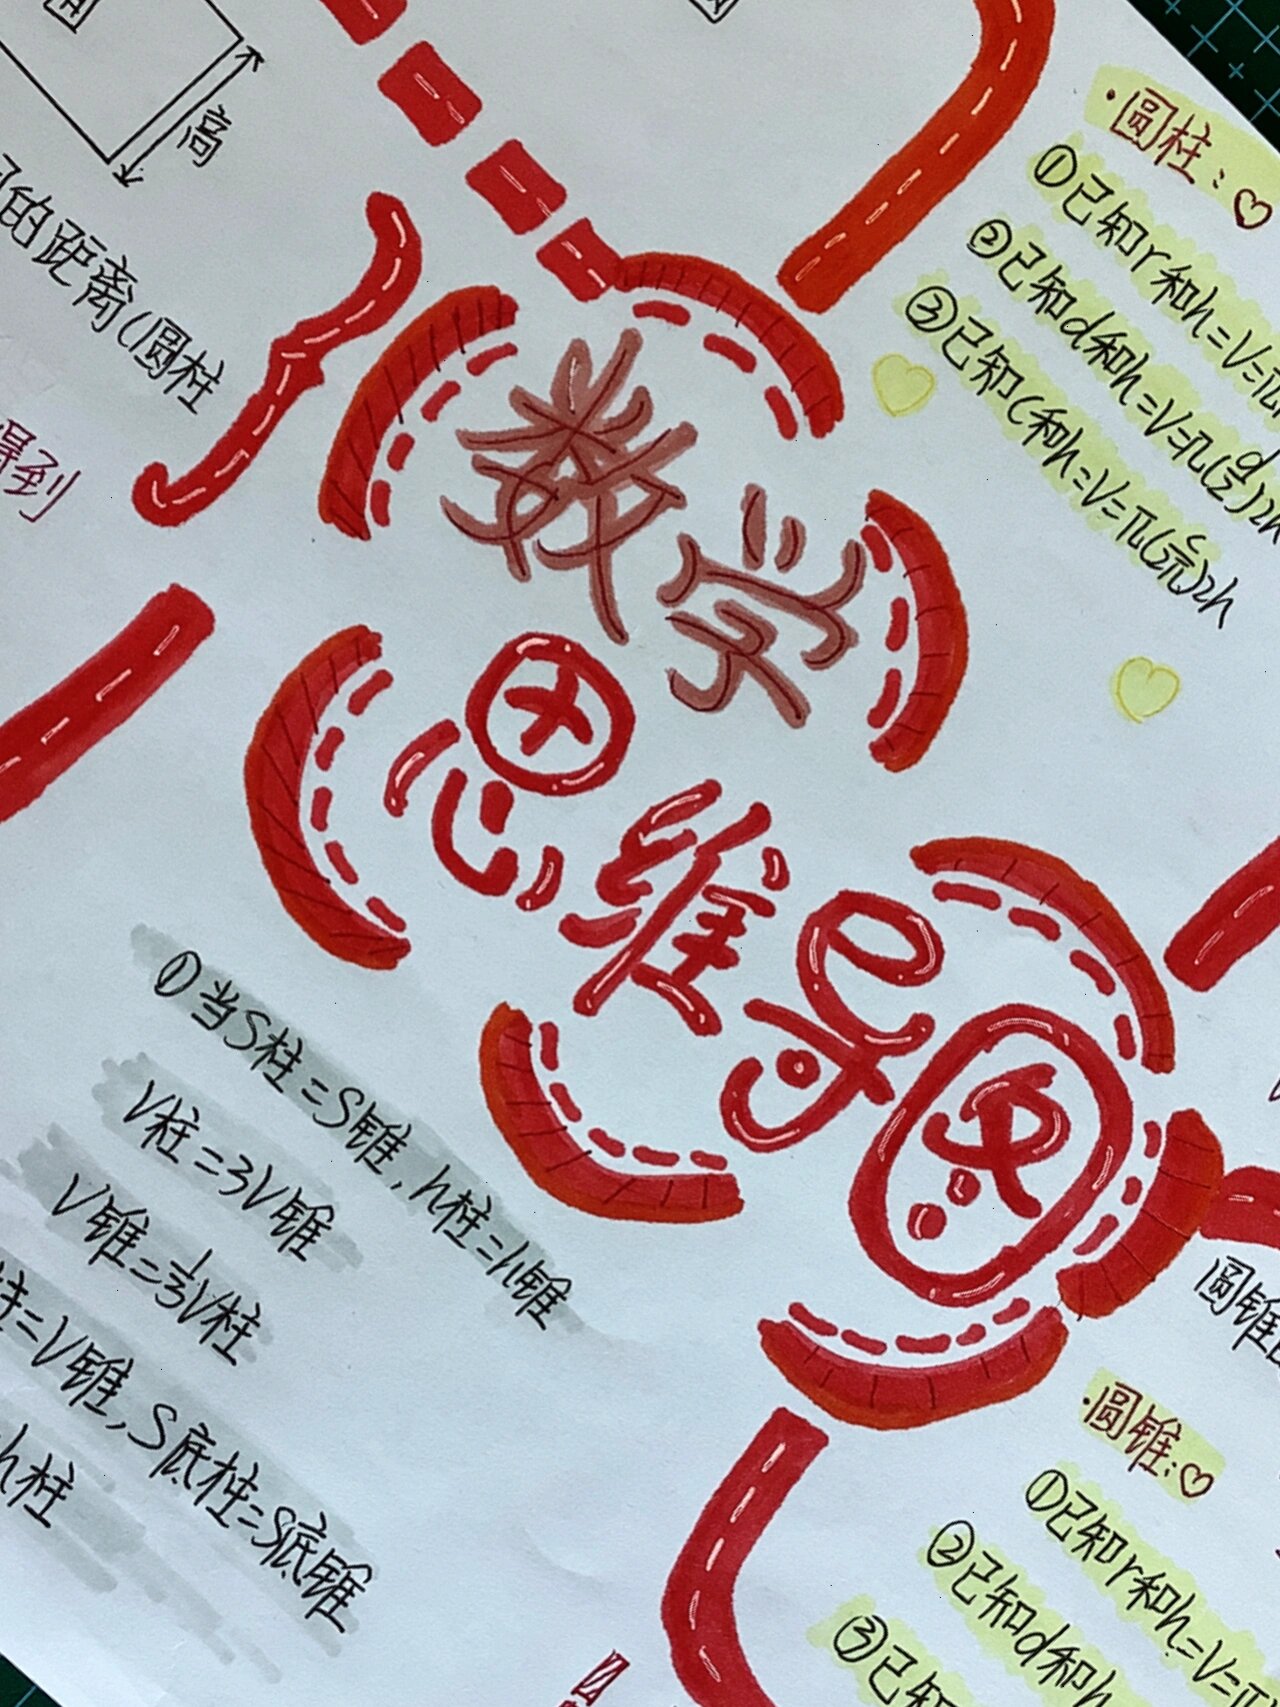 高
的距离(圆柱
得到
数学
思维导图
·圆柱:
①已知r和h=V=π
②已知d和h=V=π(d/2)2h
③已知C和h=V=π(C/2π)2h
①当S柱=S锥,h柱=h锥
V柱=3V锥
V锥=1/3V柱
柱=V锥,S底柱=S底锥
h柱
圆锥
·圆锥:
①已知r和h=V=
②已知d和h
③已知